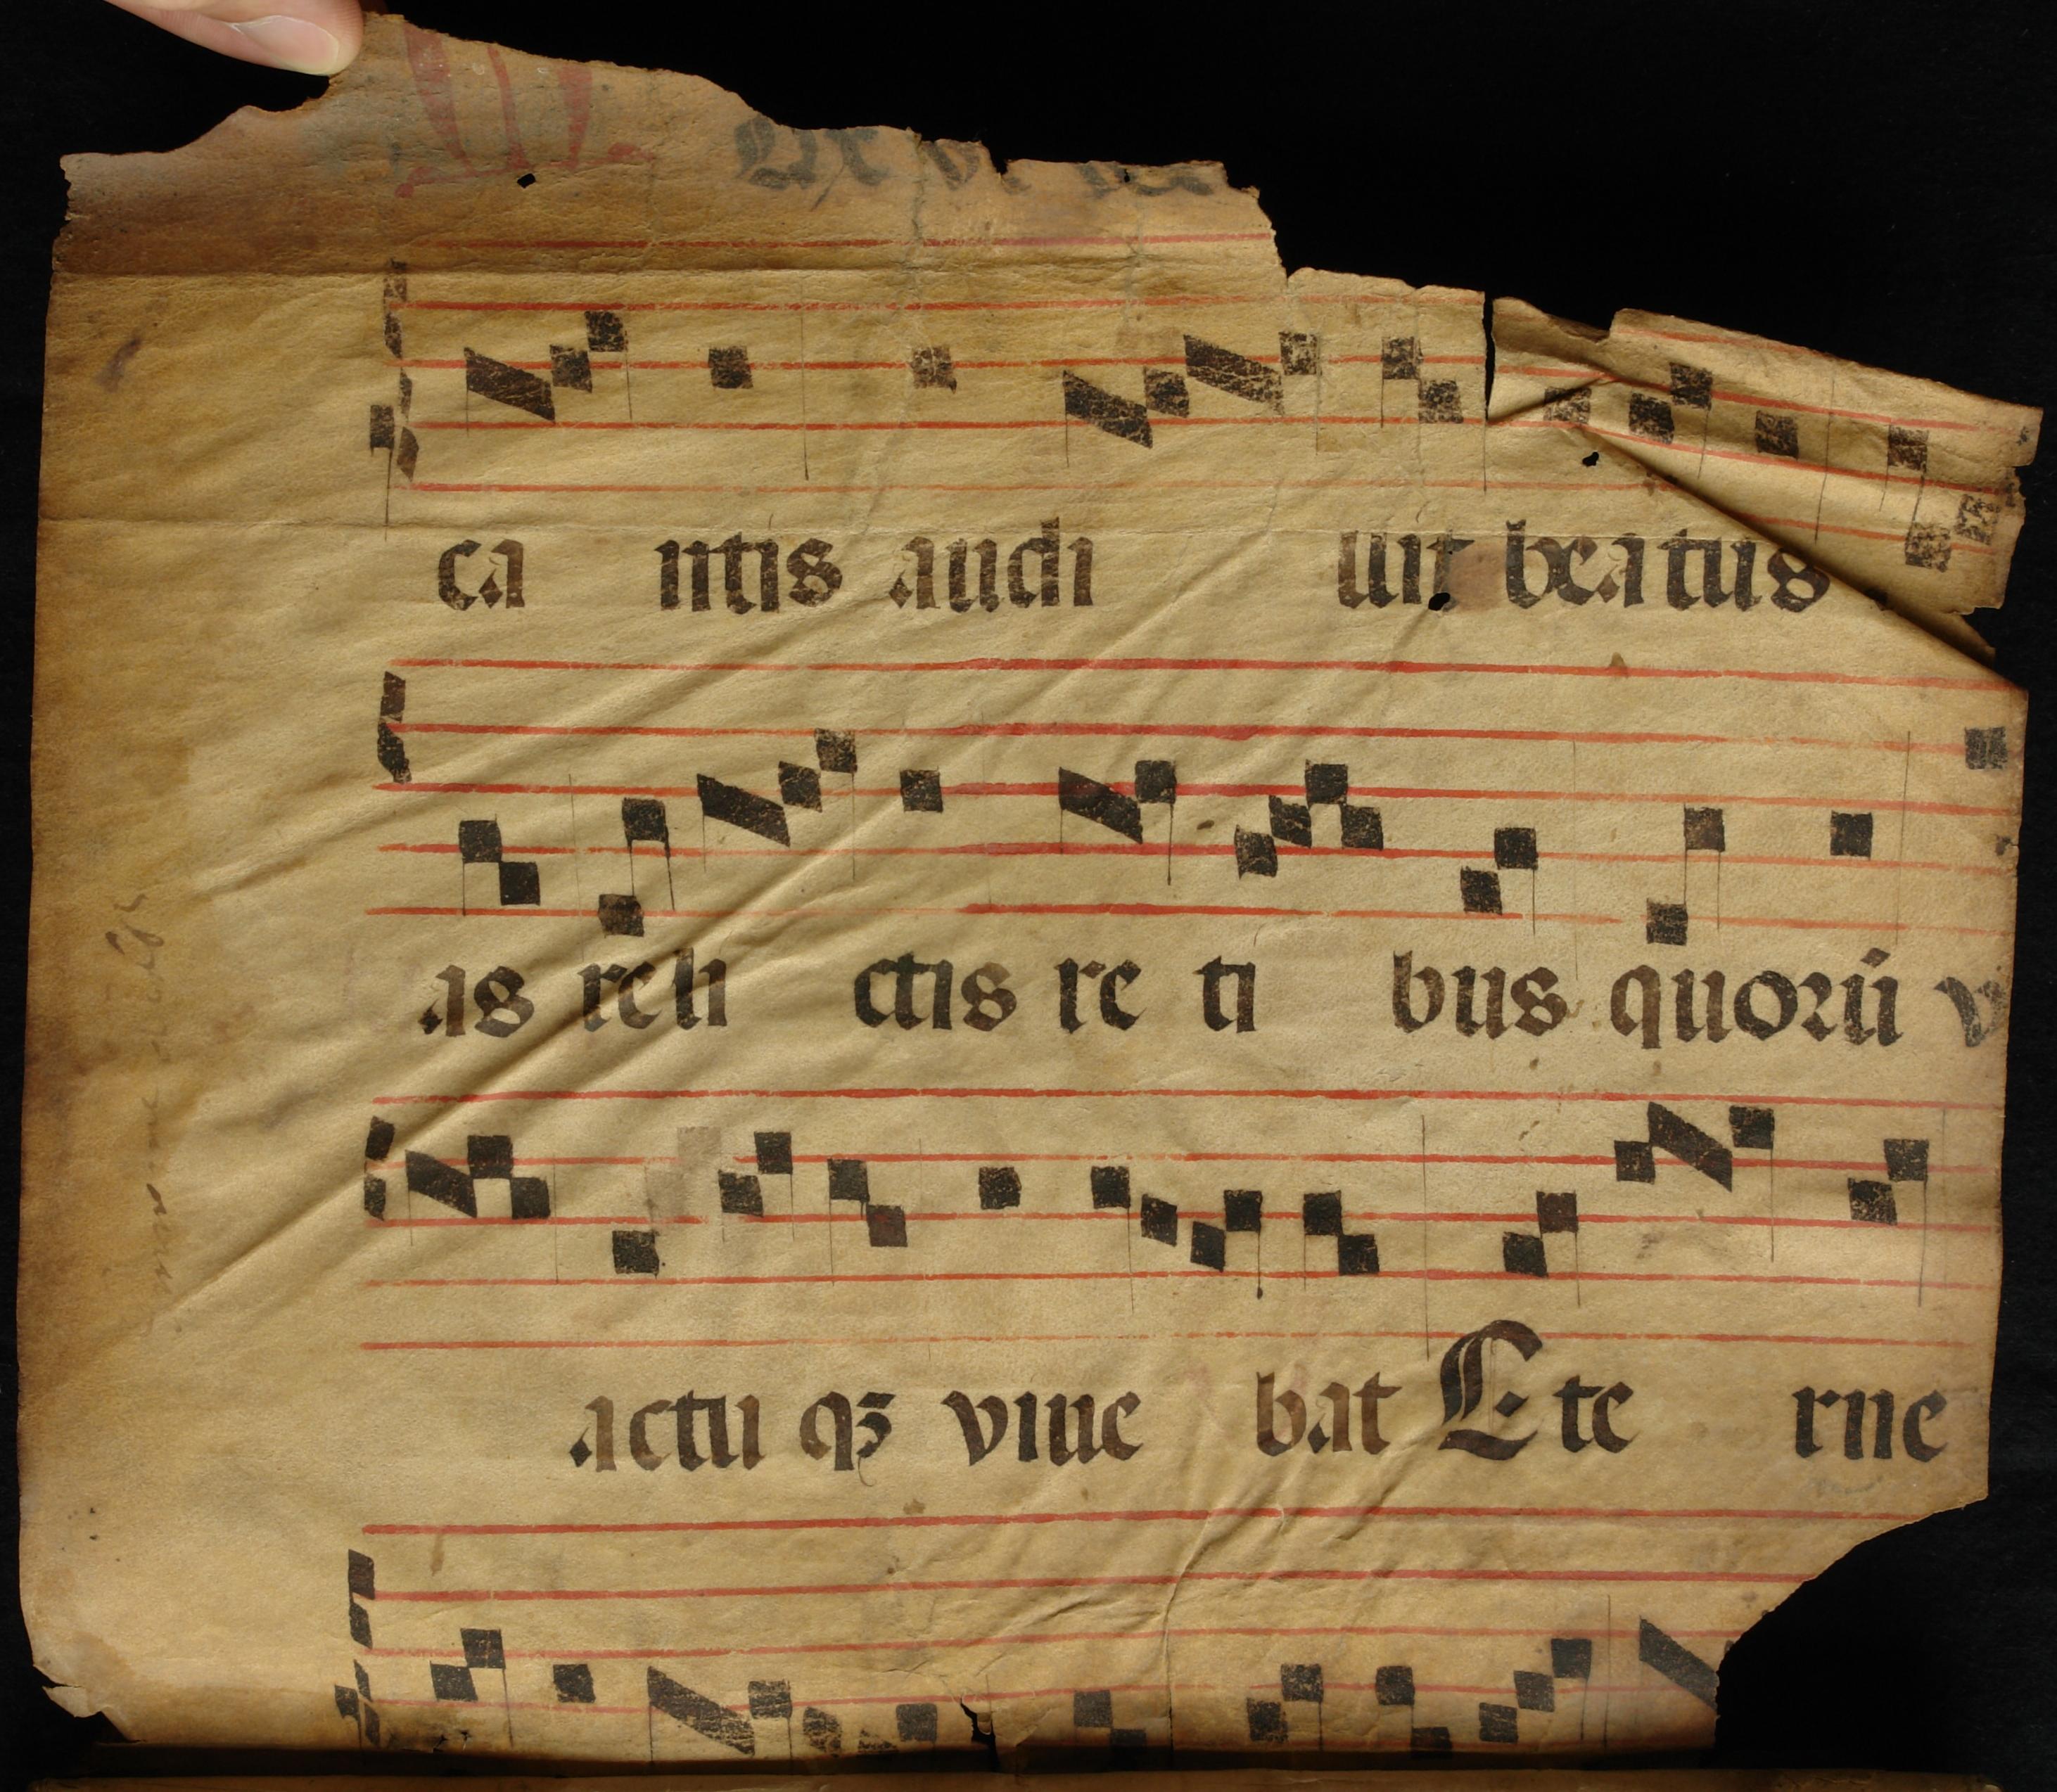 Ut vo
ca ntis audi uit beatus
as reli ctis re ti bus quorū v
actu qꝫ viue bat Ete rne